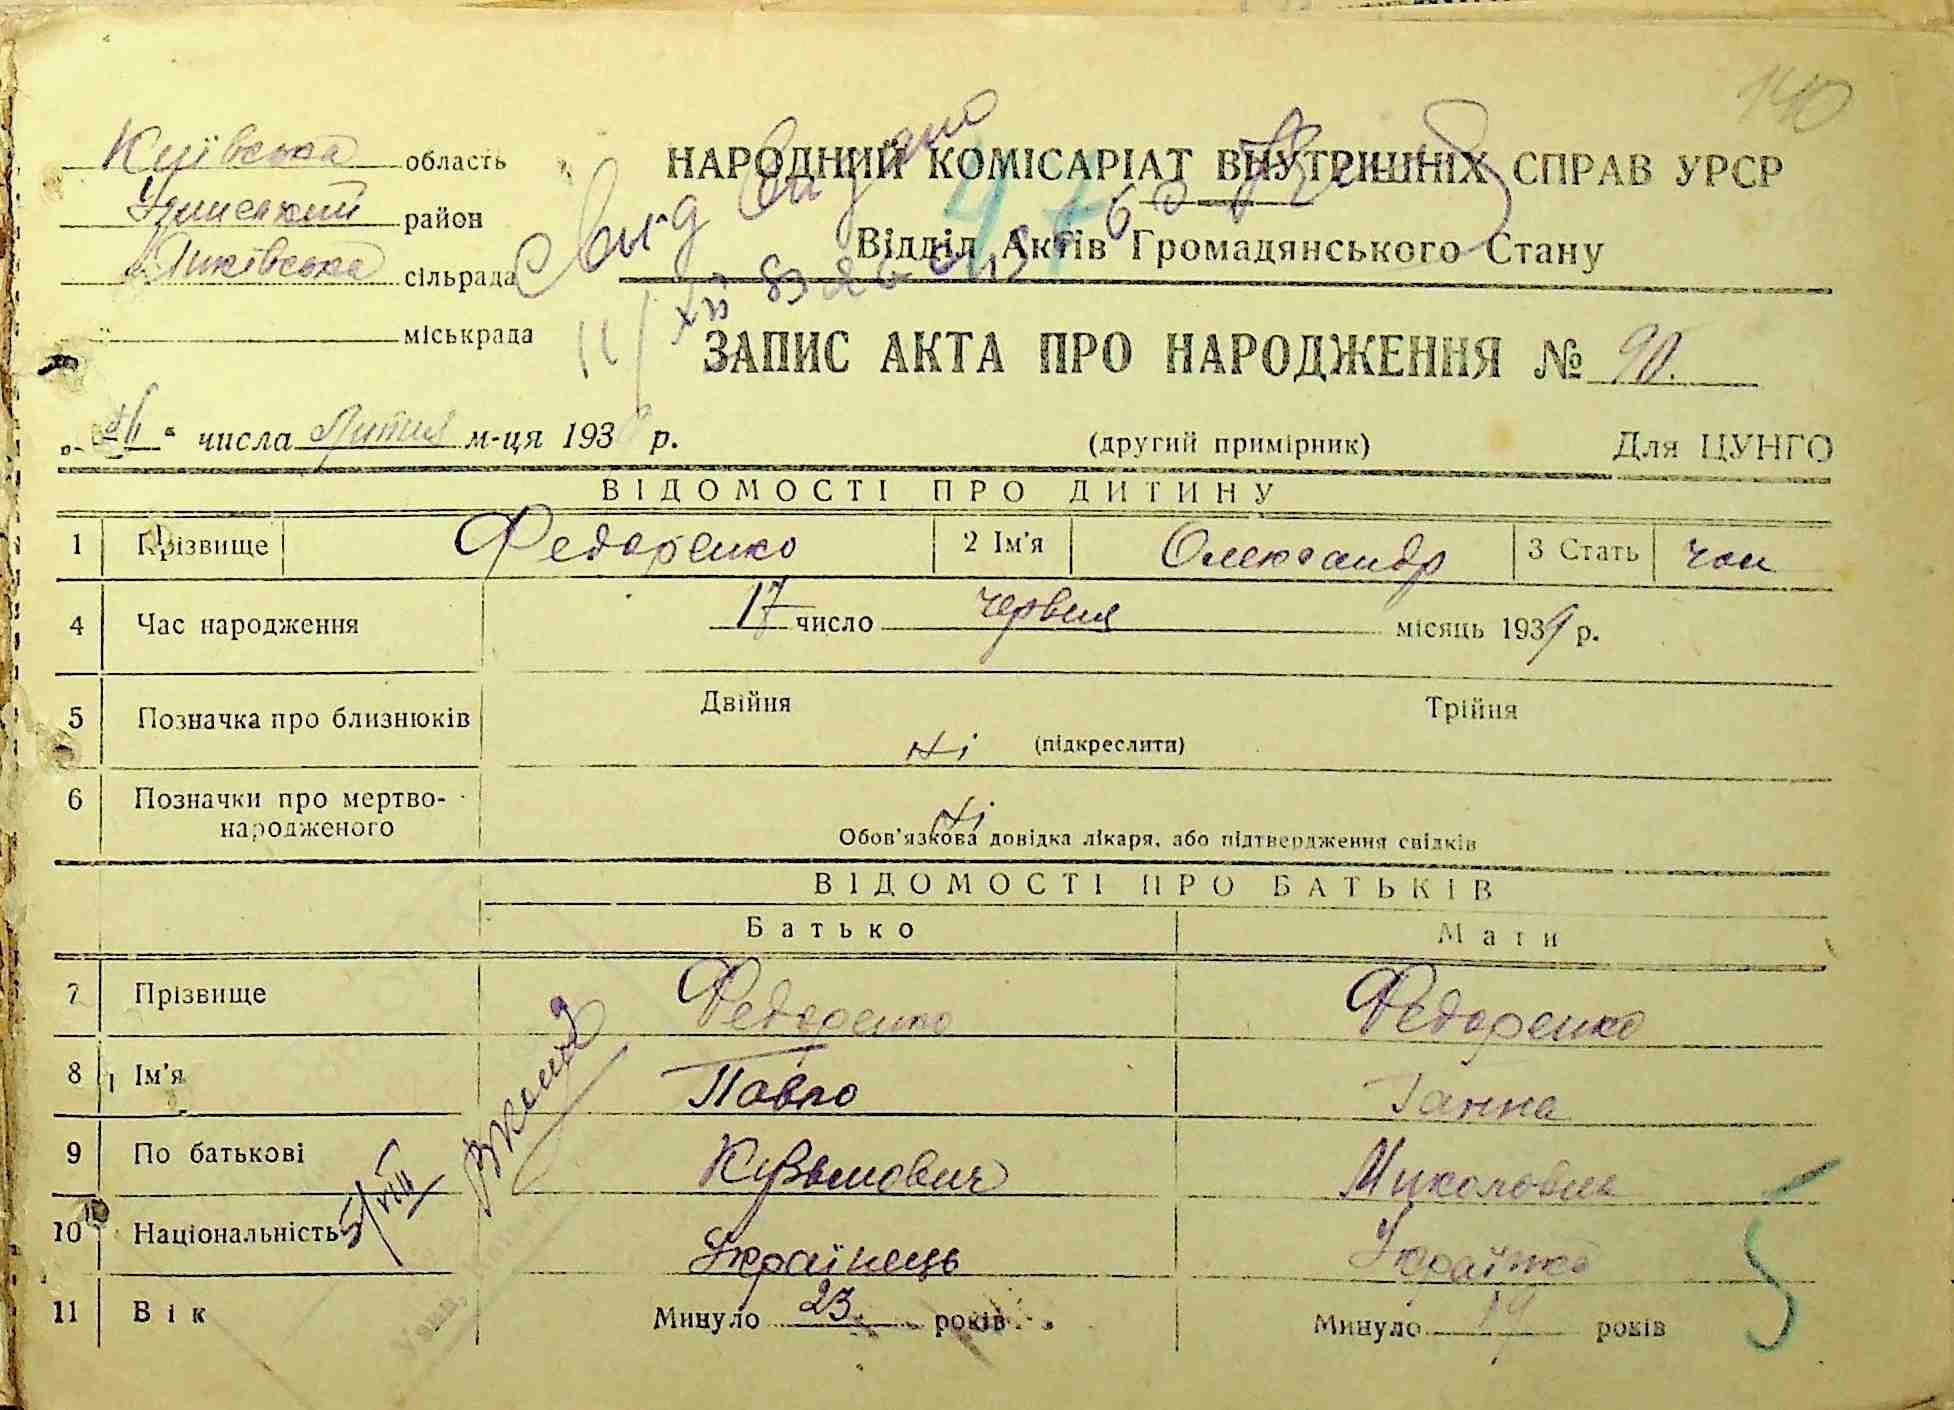 140
Київська область
Узинський район
сільрада
міськрада
НАРОДНИЙ КОМІСАРІАТ ВНУТРІШНІХ СПРАВ УРСР
Відділ Актів Громадянського Стану
ЗАПИС АКТА ПРО НАРОДЖЕННЯ № 90.
числа м-ця 193 р.
(другий примірник) Для ЦУНГО
ВІДОМОСТІ ПРО ДИТИНУ
1 Прізвище Федоренко 2 Ім'я Олександр 3 Стать чол
4 Час народження 17 число червня місяць 1939 р.
5 Позначка про близнюків Двійня Трійня
ні (підкреслити)
6 Позначки про мертво-
народженого ні
Обов'язкова довідка лікаря, або підтвердження свідків
ВІДОМОСТІ ПРО БАТЬКІВ
Батько Мати
7 Прізвище Федоренко Федоренко
8 Ім'я Павло Ганна
9 По батькові Кузьмович Миколовна
10 Національність Українець Українка
11 Вік Минуло 23 років Минуло 19 років